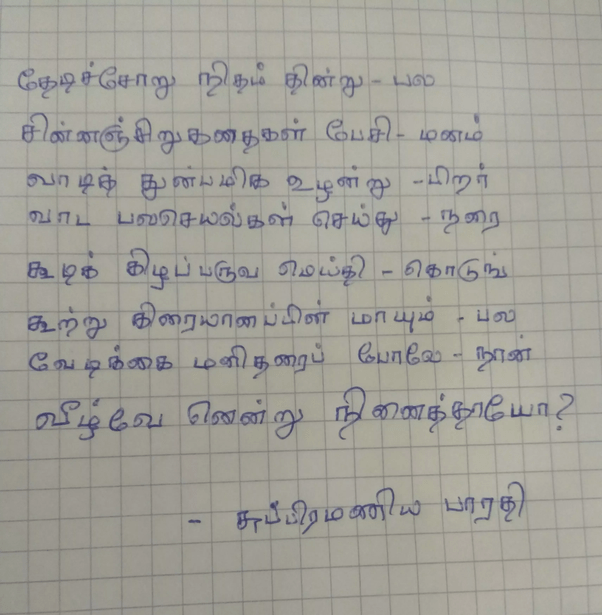 தேடிச்சோறு நிதம் தின்று - பல
சின்னஞ்சிறுகதைகள் பேசி - மனம்
வாடித் துன்பமிக உழன்று - பிறர்
வாட பலசெயல்கள் செய்து - நரை
கூடிக் கிழப்பருவ மெய்தி - கொடுங்
கூற்று கிரையானப்பின் மாயும் - பல
வேடிக்கை மனிதரைப் போலே - நான்
வீழ்வே னென்று நினைத்தாயோ?
- சுப்பிரமணிய பாரதி